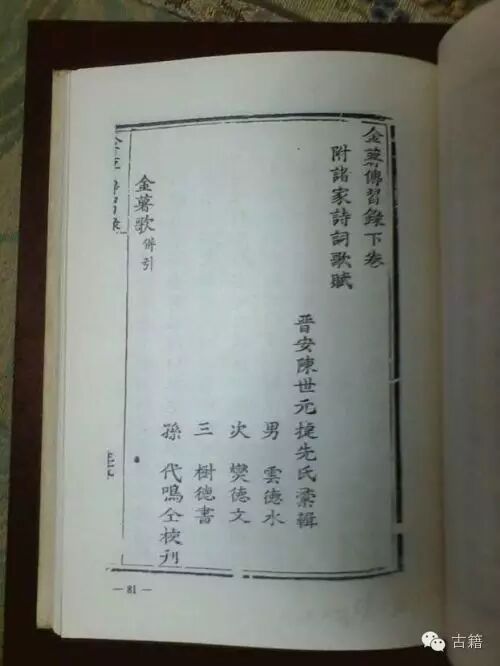 金薯傳習錄下卷
附諸家詩詞歌賦
晋安陳世元捷先氏彙輯
男 雲德水
次 燮德文
三 樹德書
孫 代鳴仝校刊
金薯歌 併引
— 81 —
古籍